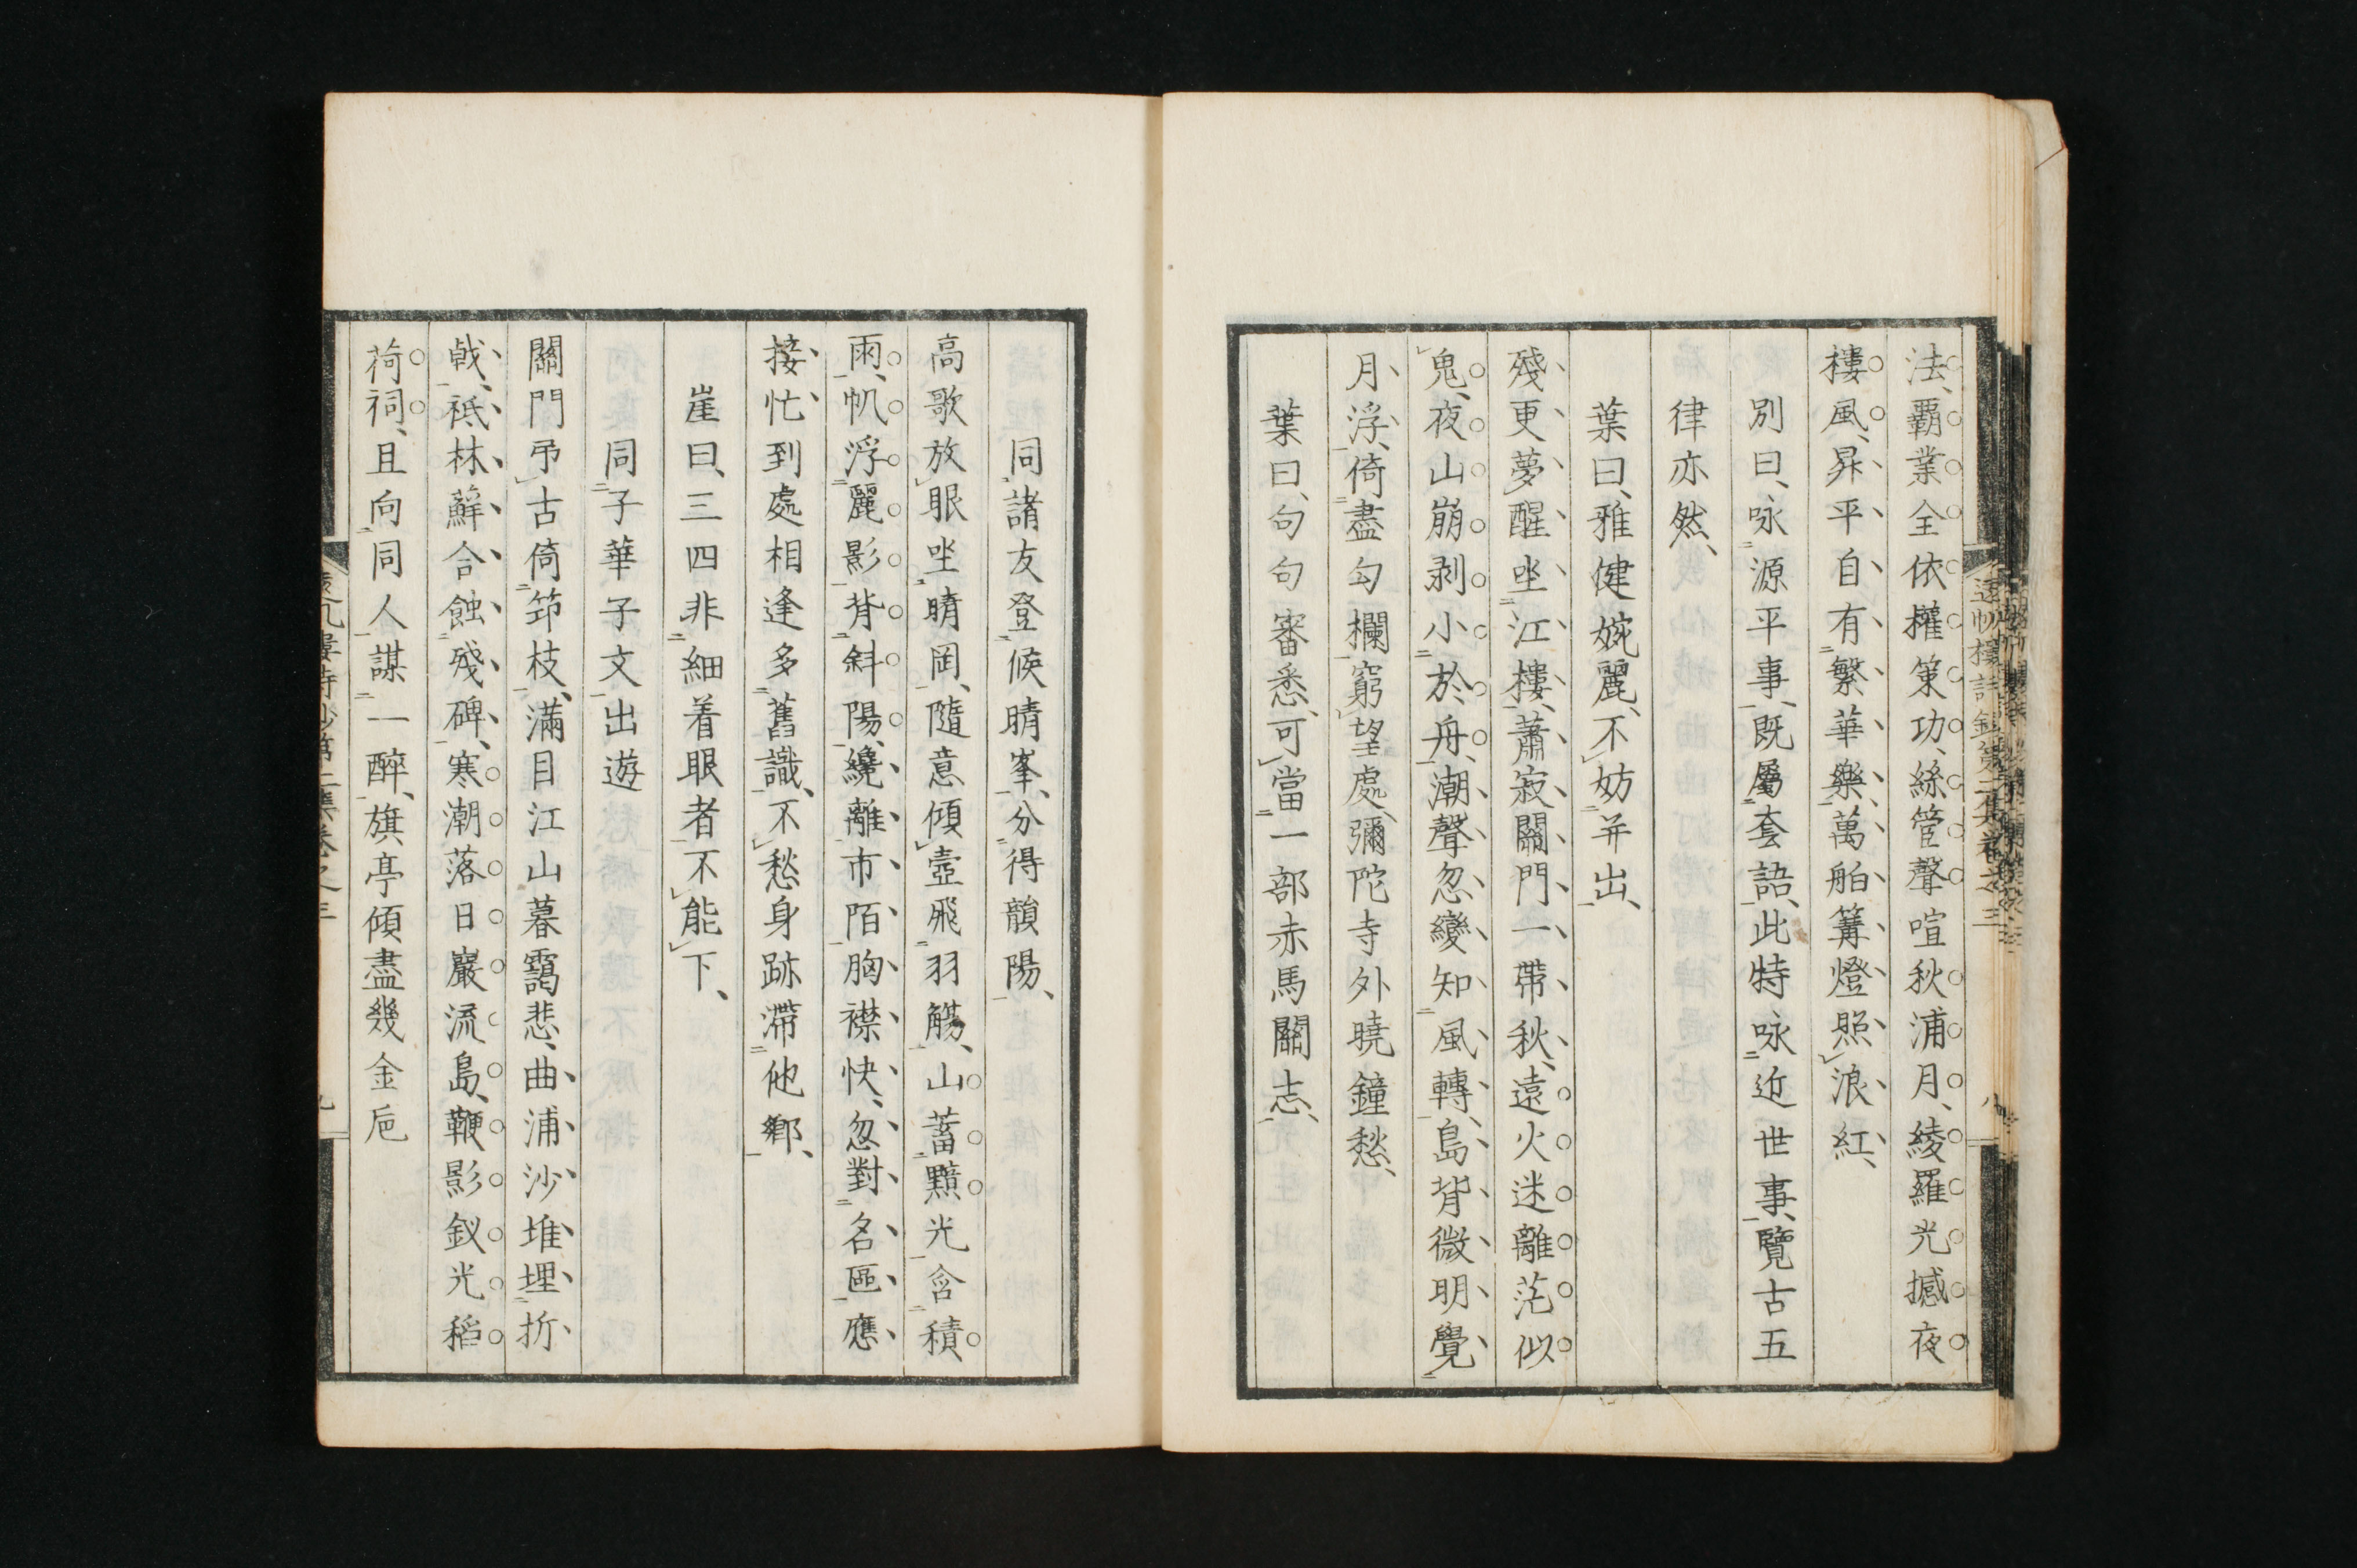 法、霸業全依權策功、絲管聲喧秋浦月、綾羅光撼夜
樓風、昇平自有繁華樂、萬舶篝燈照浪紅、
別曰、咏源平事、既屬套語、此特咏近世事、覽古五
律亦然、
葉曰、雅健婉麗、不妨并出、
殘更夢醒坐江樓、蕭寂關門一帶秋、遠火迷離茫似
鬼、夜山崩剥小於舟、潮聲忽變知風轉、島背微明覺
月浮、倚盡勾欄窮望處、彌陀寺外曉鐘愁、
葉曰、句句審悉、可當一部赤馬關志、
同諸友登候晴峯、分得韻陽、
高歌放眼坐晴岡、隨意傾壺飛羽觴、山蓄黯光含積
雨、帆浮麗影背斜陽、纔離市陌胸襟快、忽對名區應
接忙、到處相逢多舊識、不愁身跡滯他鄉、
崖曰、三四非細着眼者不能下、
同子華子文出遊
關門弔古倚筇枝、滿目江山暮靄悲、曲浦沙堆埋折
戟、祗林蘚合蝕殘碑、寒潮落日巖流島、鞭影釵光稻
荷祠、且向同人謀一醉、旗亭傾盡幾金巵